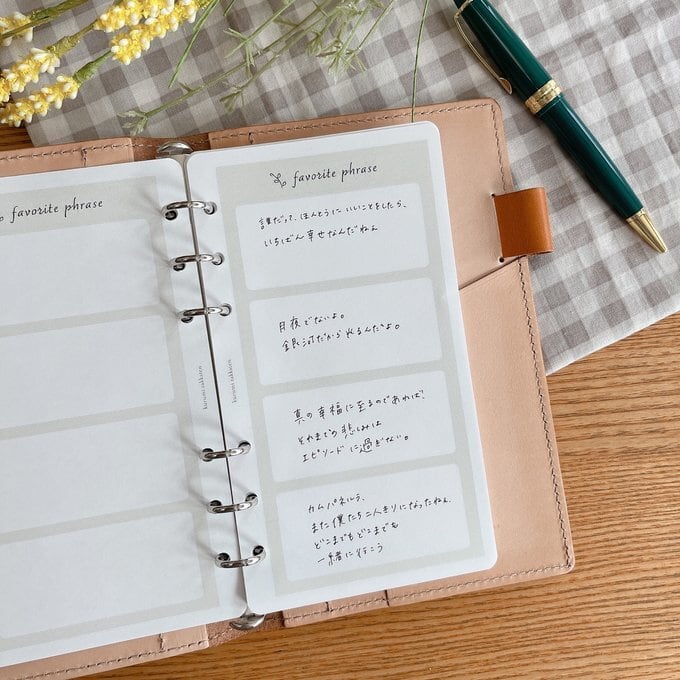 favorite phrase
favorite phrase
誰だって、ほんとうにいいことをしたら、
いちばん幸せなんだねぇ
月夜でないよ。
銀河だから光るんだよ。
真の幸福に至るのであれば、
それまでの悲しみは
エピソードに過ぎない。
カムパネルラ、
また僕たち二人きりになったねぇ、
どこまでもどこまでも
一緒に行こう